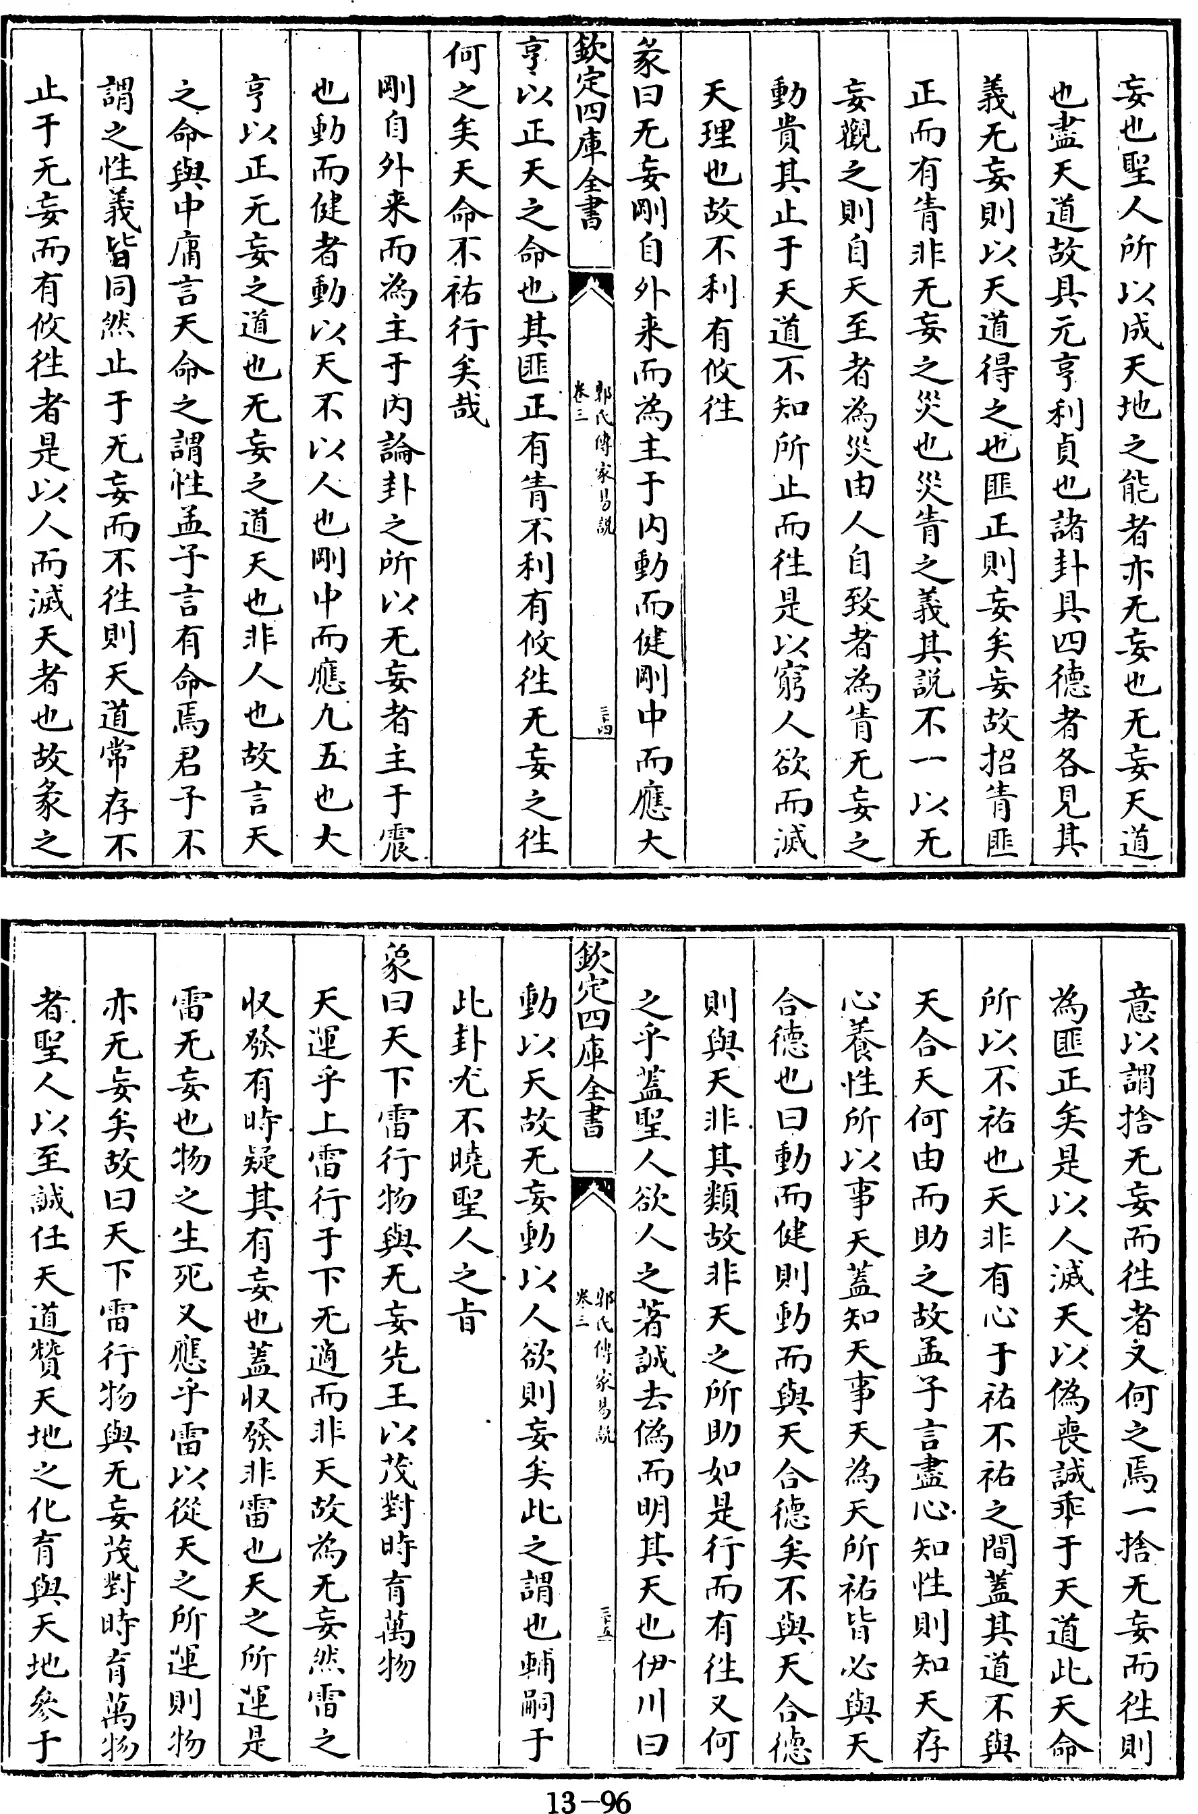 妄也聖人所以成天地之能者亦无妄也无妄天道
也盡天道故具元亨利貞也諸卦具四德者各見其
義无妄則以天道得之也匪正則妄矣妄故招眚匪
正而有眚非无妄之災也災眚之義其説不一以无
妄觀之則自天至者為災由人自致者為眚无妄之
動貴其止于天道不知所止而往是以窮人欲而滅
天理也故不利有攸往
彖曰无妄剛自外来而為主于内動而健剛中而應大
欽定四庫全書
郭氏傳家易説
卷三
三十四
亨以正天之命也其匪正有眚不利有攸往无妄之往
何之矣天命不祐行矣哉
剛自外来而為主于内論卦之所以无妄者主于震
也動而健者動以天不以人也剛中而應九五也大
亨以正无妄之道也无妄之道天也非人也故言天
之命與中庸言天命之謂性孟子言有命焉君子不
謂之性義皆同然止于无妄而不往則天道常存不
止于无妄而有攸往者是以人而滅天者也故彖之
意以謂捨无妄而往者又何之焉一捨无妄而往則
為匪正矣是以人滅天以偽喪誠乖于天道此天命
所以不祐也天非有心于祐不祐之間蓋其道不與
天合天何由而助之故孟子言盡心知性則知天存
心養性所以事天蓋知天事天為天所祐皆必與天
合德也曰動而健則動而與天合德矣不與天合德
則與天非其類故非天之所助如是行而有往又何
之乎蓋聖人欲人之著誠去偽而明其天也伊川曰
欽定四庫全書
郭氏傳家易説
卷三
三十五
動以天故无妄動以人欲則妄矣此之謂也輔嗣于
此卦尤不曉聖人之旨
象曰天下雷行物與无妄先王以茂對時育萬物
天運乎上雷行于下无適而非天故為无妄然雷之
收發有時疑其有妄也蓋收發非雷也天之所運是
雷无妄也物之生死又應乎雷以從天之所運則物
亦无妄矣故曰天下雷行物與无妄茂對時育萬物
者聖人以至誠任天道贊天地之化育與天地參于
13-96